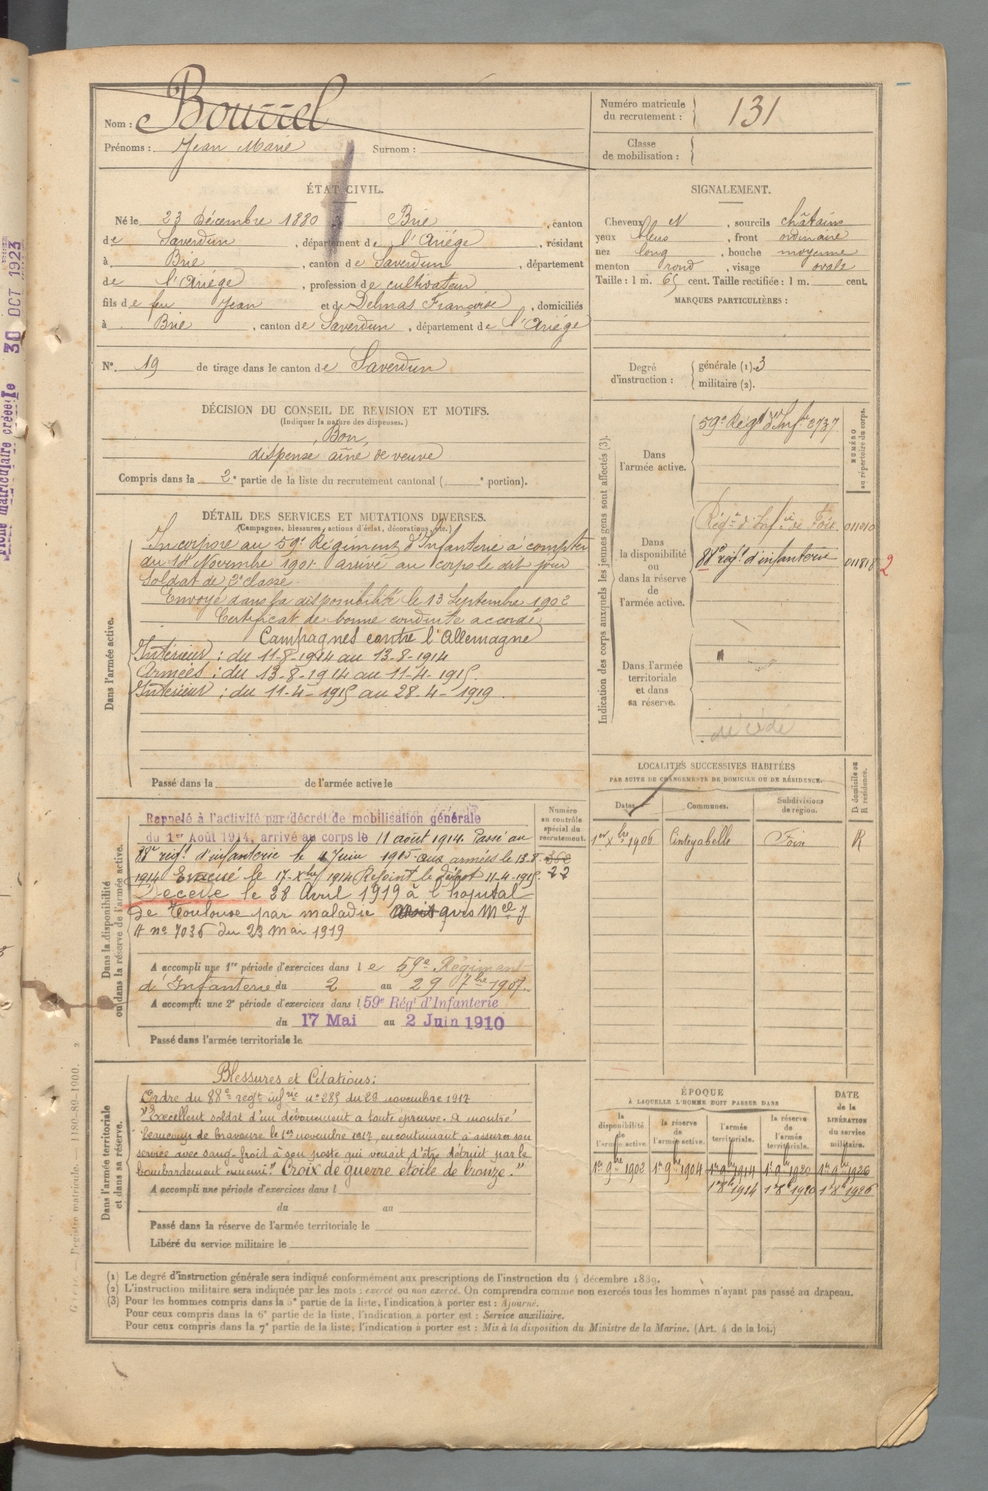 Nom : Bourrel
Prénoms : Jean Marie Surnom :
Numéro matricule du recrutement : 131
Classe de mobilisation :
ÉTAT CIVIL.
Né le 23 Décembre 1880 à Brie, canton
de Saverdun, département de l'Ariège, résidant
à Brie, canton de Saverdun, département
de l'Ariège, profession de cultivateur
fils de feu Jean et de Delmas Françoise, domiciliés
à Brie, canton de Saverdun, département de l'Ariège
N° 19 de tirage dans le canton de Saverdun
SIGNALEMENT.
Cheveux N, sourcils châtains
yeux bleus, front ordinaire
nez long, bouche moyenne
menton rond, visage ovale
Taille : 1 m. 65 cent. Taille rectifiée : 1 m. cent.
MARQUES PARTICULIÈRES :
Degré d'instruction : générale (1) 3
militaire (2).
DÉCISION DU CONSEIL DE REVISION ET MOTIFS.
(Indiquer la nature des dispenses.)
Bon
dispense aîné de veuve
Compris dans la 2e partie de la liste du recrutement cantonal ( e portion).
DÉTAIL DES SERVICES ET MUTATIONS DIVERSES.
(Campagnes, blessures, actions d'éclat, décorations, etc.)
Dans l'armée active.
Incorporé au 59e Régiment d'Infanterie à compter
du 14 Novembre 1901 arrivé au corps le dit jour
Soldat de 2e classe
Envoyé dans la disponibilité le 13 Septembre 1902
Certificat de bonne conduite accordé
Campagnes contre l'Allemagne
Intérieur : du 11-8-1914 au 13-8-1914
Armées : du 13-8-1914 au 11-4-1915
Intérieur : du 11-4-1915 au 28-4-1919.
Passé dans la de l'armée active le
Indication des corps auxquels les jeunes gens sont affectés (3).
NUMÉRO au répertoire du corps.
Dans l'armée active.
59e Régt d'Infie 2737
Dans la disponibilité ou dans la réserve de l'armée active.
Régt d'Infie de Foix 011010
88e régt d'infanterie 011818 2
Dans l'armée territoriale et dans sa réserve.
décédé
LOCALITÉS SUCCESSIVES HABITÉES
PAR SUITE DE CHANGEMENTS DE DOMICILE OU DE RÉSIDENCE.
Dates. Communes. Subdivisions de région. D domicile ou R résidence.
1er Xbre 1906 Cintegabelle Foix R
Dans la disponibilité ou dans la réserve de l'armée active.
Numéro au contrôle spécial du recrutement.
Rappelé à l'activité par décret de mobilisation générale
du 1er Août 1914, arrivé au corps le 11 août 1914. Passé au
88e régt d'infanterie le 4 Juin 1915 aux armées le 13.8.
1914 Evacué le 17-Xbre 1914 Rejoint le dépôt 11-4-1915. 22
Décédé le 28 Avril 1919 à l'hôpital
de Toulouse par maladie
n° 7036 du 23 Mai 1919
A accompli une 1re période d'exercices dans le 59e Régiment
d'Infanterie du 2 au 29 7bre 1907.
A accompli une 2e période d'exercices dans l 59e Régt d'Infanterie
du 17 Mai au 2 Juin 1910
Passé dans l'armée territoriale le
Dans l'armée territoriale et dans sa réserve.
Blessures et Citations :
Ordre du 88e regt infrie n° 285 du 29 novembre 1917
"Excellent soldat d'un dévouement a toute épreuve. A montré
beaucoup de bravoure le 1er novembre 1917, en continuant a assurer son
service avec sang-froid à son poste qui venait d'être détruit par le
bombardement ennemi." Croix de guerre etoile de bronze."
A accompli une période d'exercices dans l
du au
Passé dans la réserve de l'armée territoriale le
Libéré du service militaire le
ÉPOQUE
À LAQUELLE L'HOMME DOIT PASSER DANS
la disponibilité de l'armée active. la réserve de l'armée active. l'armée territoriale. la réserve de l'armée territoriale. DATE de la LIBÉRATION du service militaire.
1er 9bre 1902 1er 9bre 1904 1er 9bre 1914 1er 9bre 1920 1er 9bre 1926
1er 8bre 1914 1er 8bre 1920 1er 8bre 1926
(1) Le degré d'instruction générale sera indiqué conformément aux prescriptions de l'instruction du 4 décembre 1889.
(2) L'instruction militaire sera indiquée par les mots : exercé ou non exercé. On comprendra comme non exercés tous les hommes n'ayant pas passé au drapeau.
(3) Pour les hommes compris dans la 5e partie de la liste, l'indication à porter est : Ajourné.
Pour ceux compris dans la 6e partie de la liste, l'indication à porter est : Service auxiliaire.
Pour ceux compris dans la 7e partie de la liste, l'indication à porter est : Mis à la disposition du Ministre de la Marine. (Art. 4 de la loi.)
Registre matricule. 1180-89-1900.
Fiche matriculaire créée le 30 OCT 1923